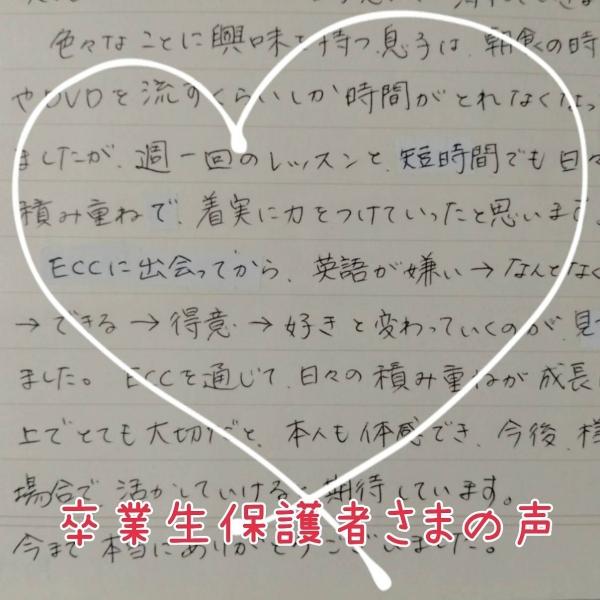 色々なことに興味を持つ息子は、朝食の時
やDVDを流すくらいしか時間がとれなくなっ
ましたが、週一回のレッスンと、短時間でも日々
積み重ねで、着実に力をつけていったと思います。
ECCに出会ってから、英語が嫌い→なんとなく
→できる→得意→好きと変わっていくのが、見
ました。ECCを通じて、日々の積み重ねが成長
上でとても大切だと、本人も体感でき、今後、様
場合で活かしていける 期待しています。
卒業生保護者さまの声
今まで本当にありがとうございました。